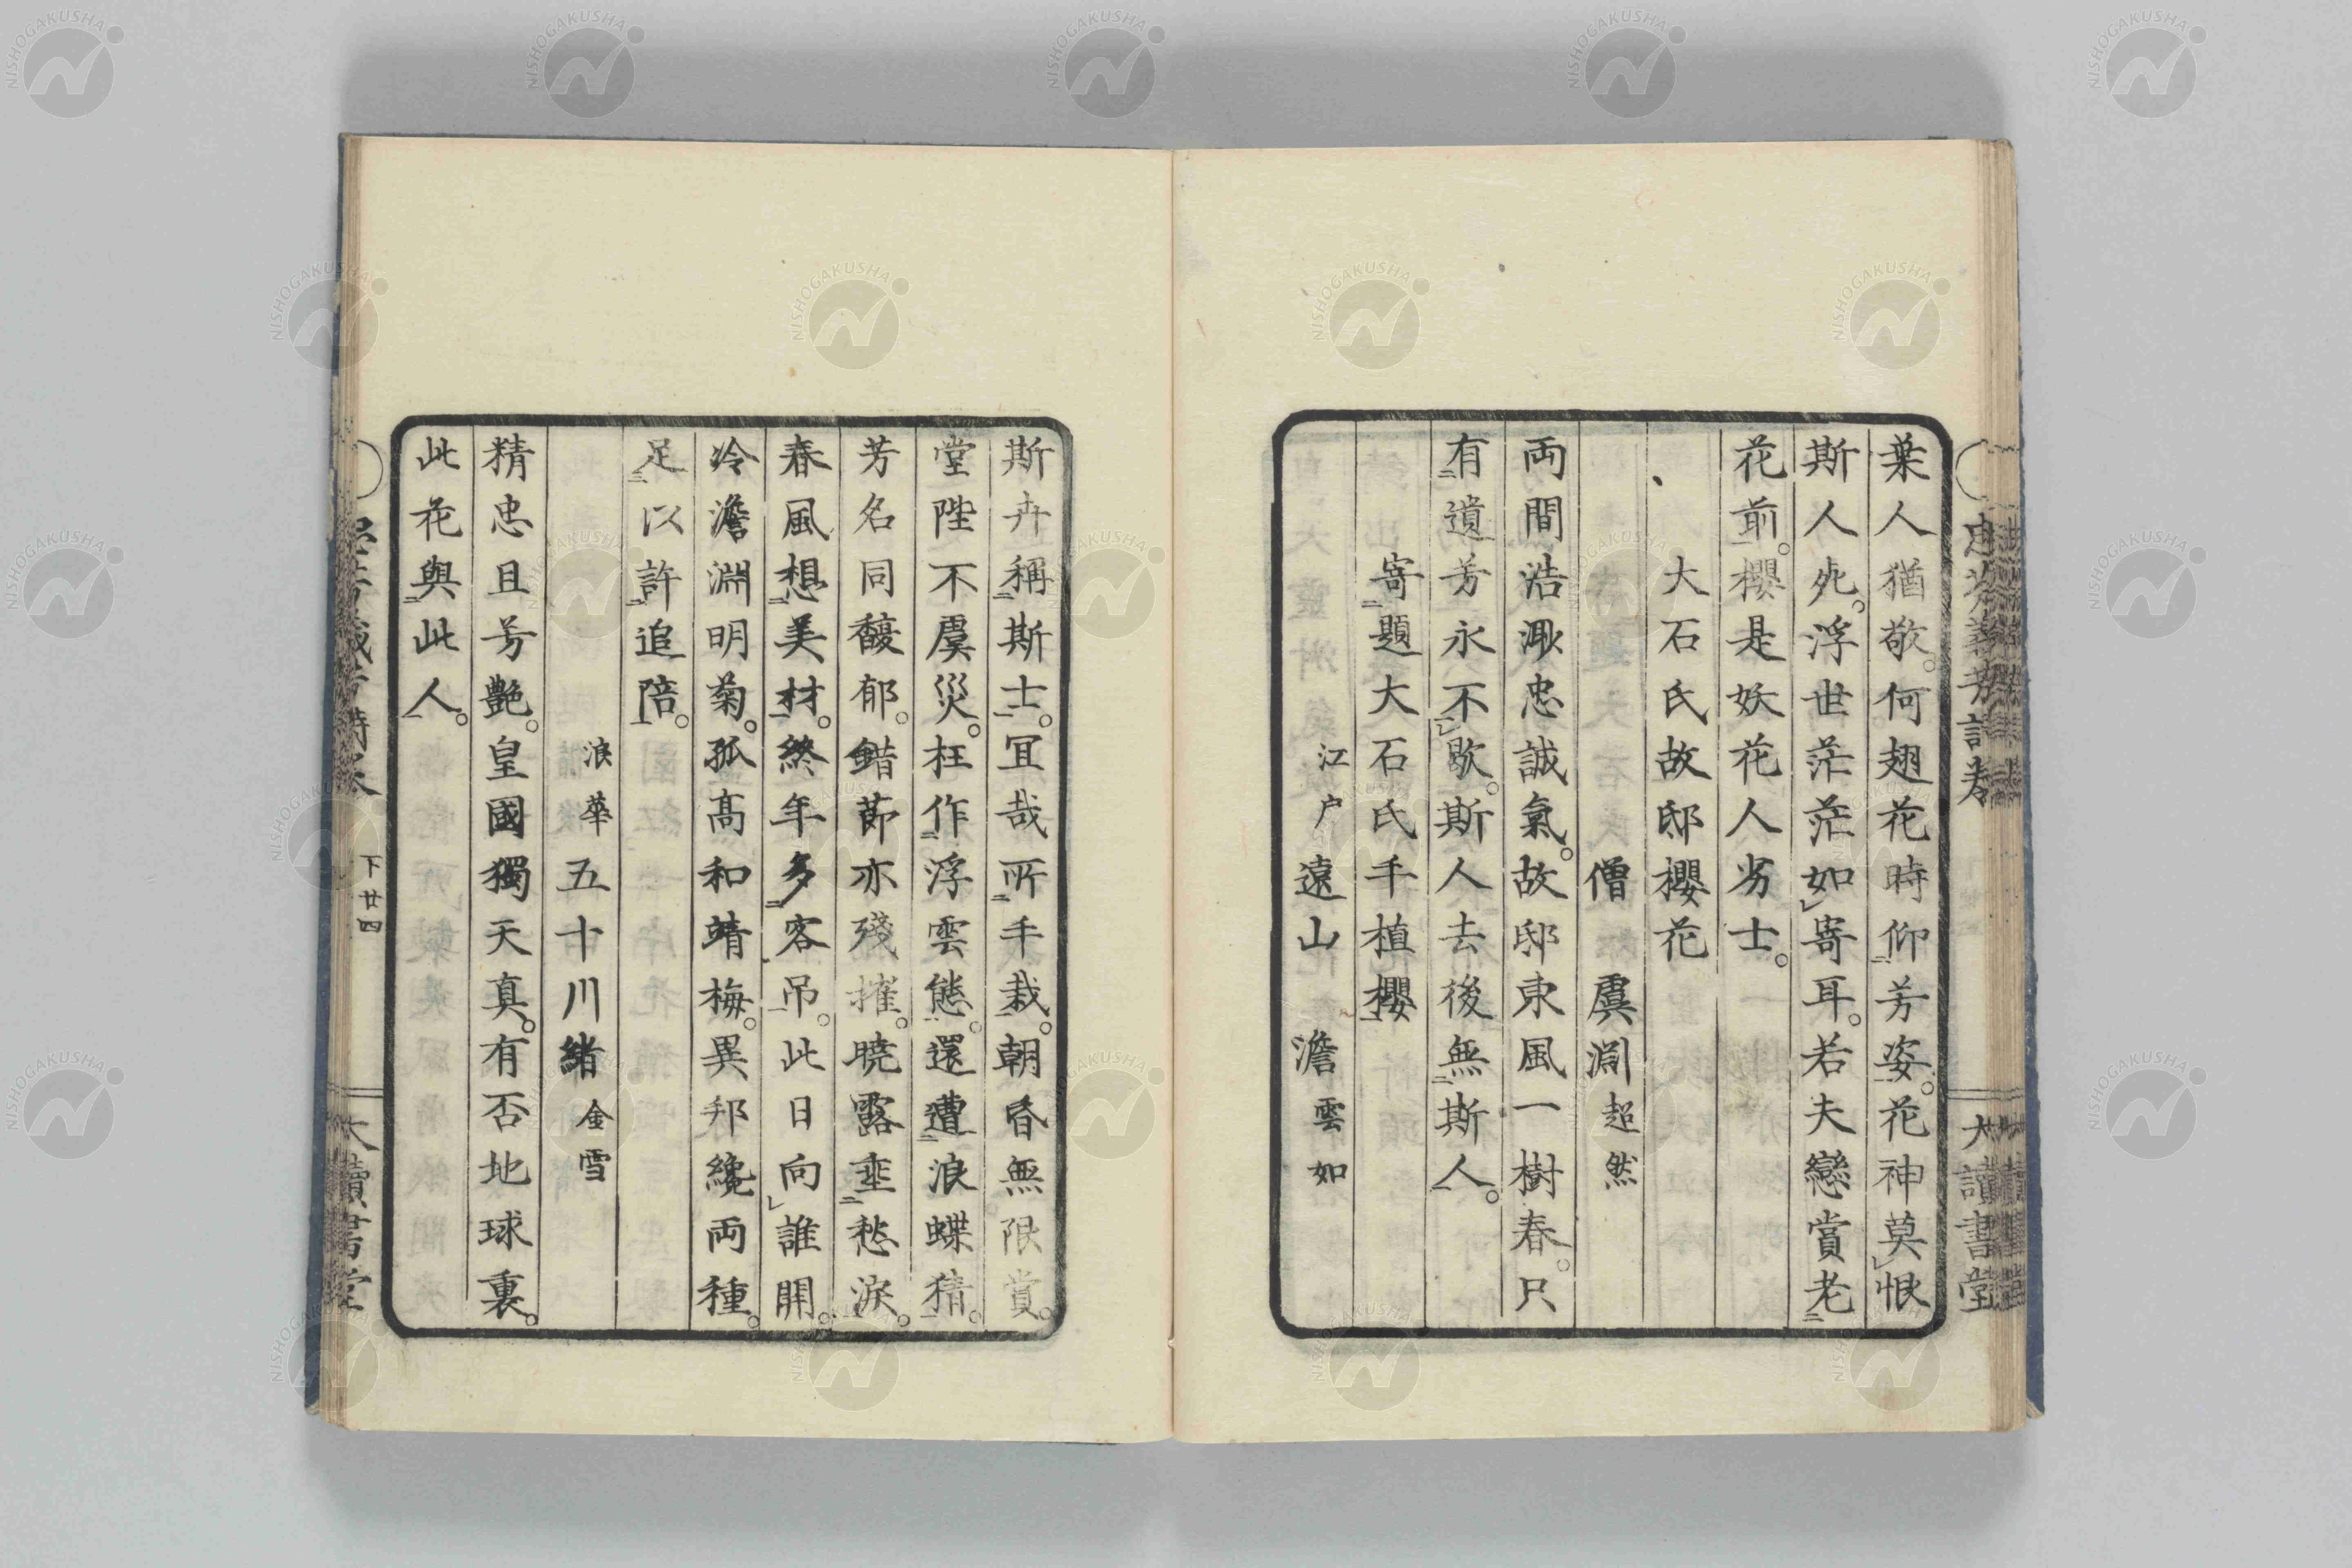 葉人猶敬。何翅花時仰芳姿。花神莫恨
斯人死。浮世茫茫如寄耳。若夫戀賞老
花前。櫻是妖花人劣士。
大石氏故邸櫻花
僧 虞淵超然
両間浩漑忠誠氣。故邸東風一樹春。只
有遺芳永不歇。斯人去後無斯人。
寄題大石氏手植櫻
江戸 遠山澹雲如
斯卉稱斯士。冝哉所手栽。朝昏無限賞。
堂陛不虞災。枉作浮雲態。還遭浪蝶猜。
芳名同馥郁。錯莭亦殘摧。曉露埀愁淚。
春風想美材。終年多客吊。此日向誰開。
冷澹淵明菊。孤高和靖梅。異邦纔両種。
足以許追陪。
浪華 五十川緒金雪
精忠且芳艷。皇國獨天真。有否地球裏。
此花與此人。
下廿四
大讀書堂
NISHOGAKUSHA